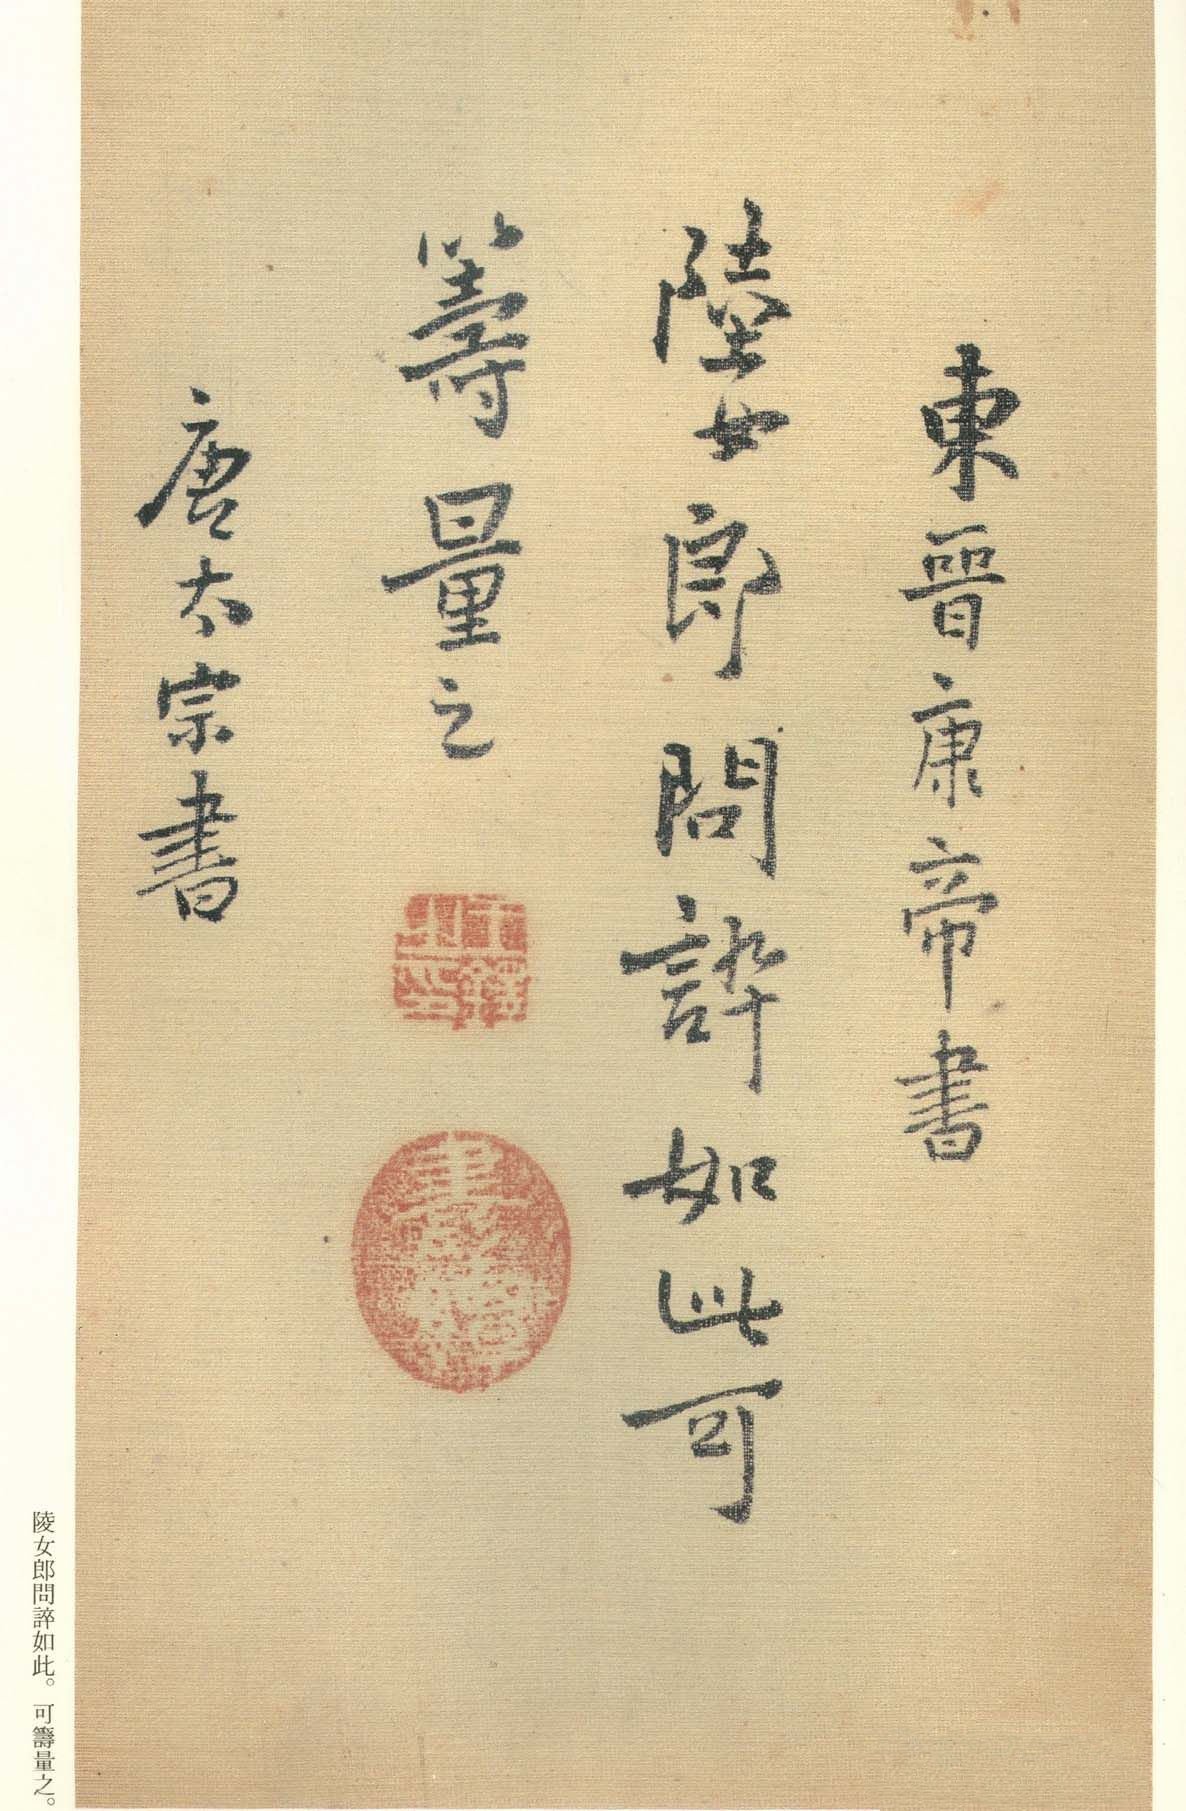 東晉康帝書
陸女郎問誶如此可
籌量之
唐太宗書
陵女郎問誶如此。可籌量之。